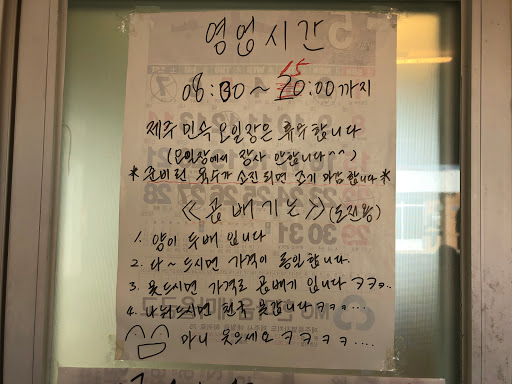 영업시간
08:30~15:00까지
제주 민속오일장은 휴무합니다
(오일장에서 장사 안합니다^^)
*준비된 육수가 소진되면 조기 마감합니다*
<<곱배기는>>(도전왕)
1. 양이 두배 입니다
2. 다~드시면 가격이 동일합니다.
3. 못드시면 가격도 곱배기 입니다 ㅋㅋㅋ..
4. 나눠드시면 천국 못갑니다 ㅋㅋㅋ...
마니 웃으세요 ㅋㅋㅋㅋ....